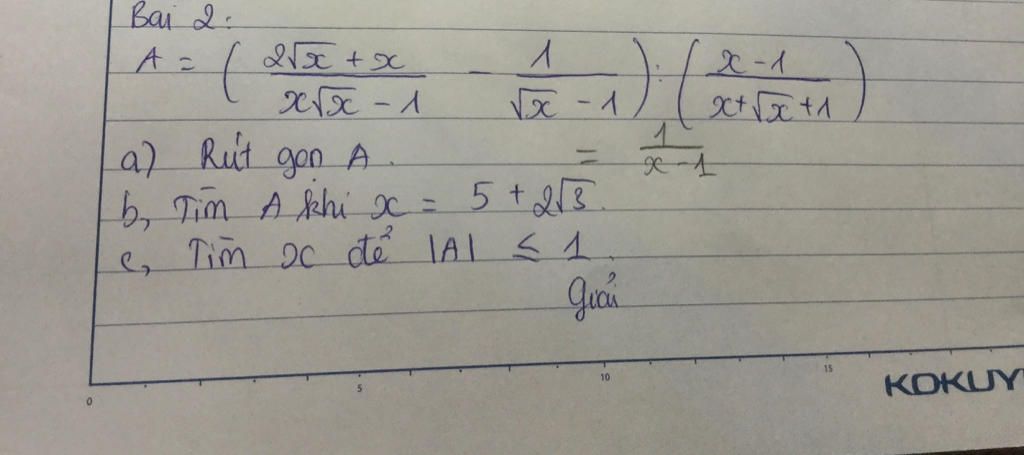 Bài 2:
A = ( (2√x + x)/(x√x - 1) - 1/(√x - 1) ) : ( (x - 1)/(x + √x + 1) )
a) Rút gọn A. = 1/(x - 1)
b, Tìm A khi x = 5 + 2√3.
c, Tìm x để |A| ≤ 1.
Giải
0 5 10 15
KOKUY